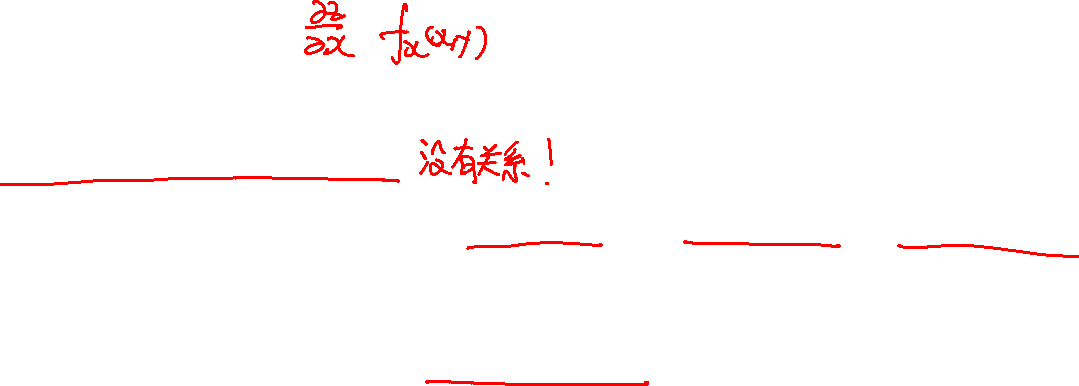 ∂z/∂x fx(x,y)
没有关系！